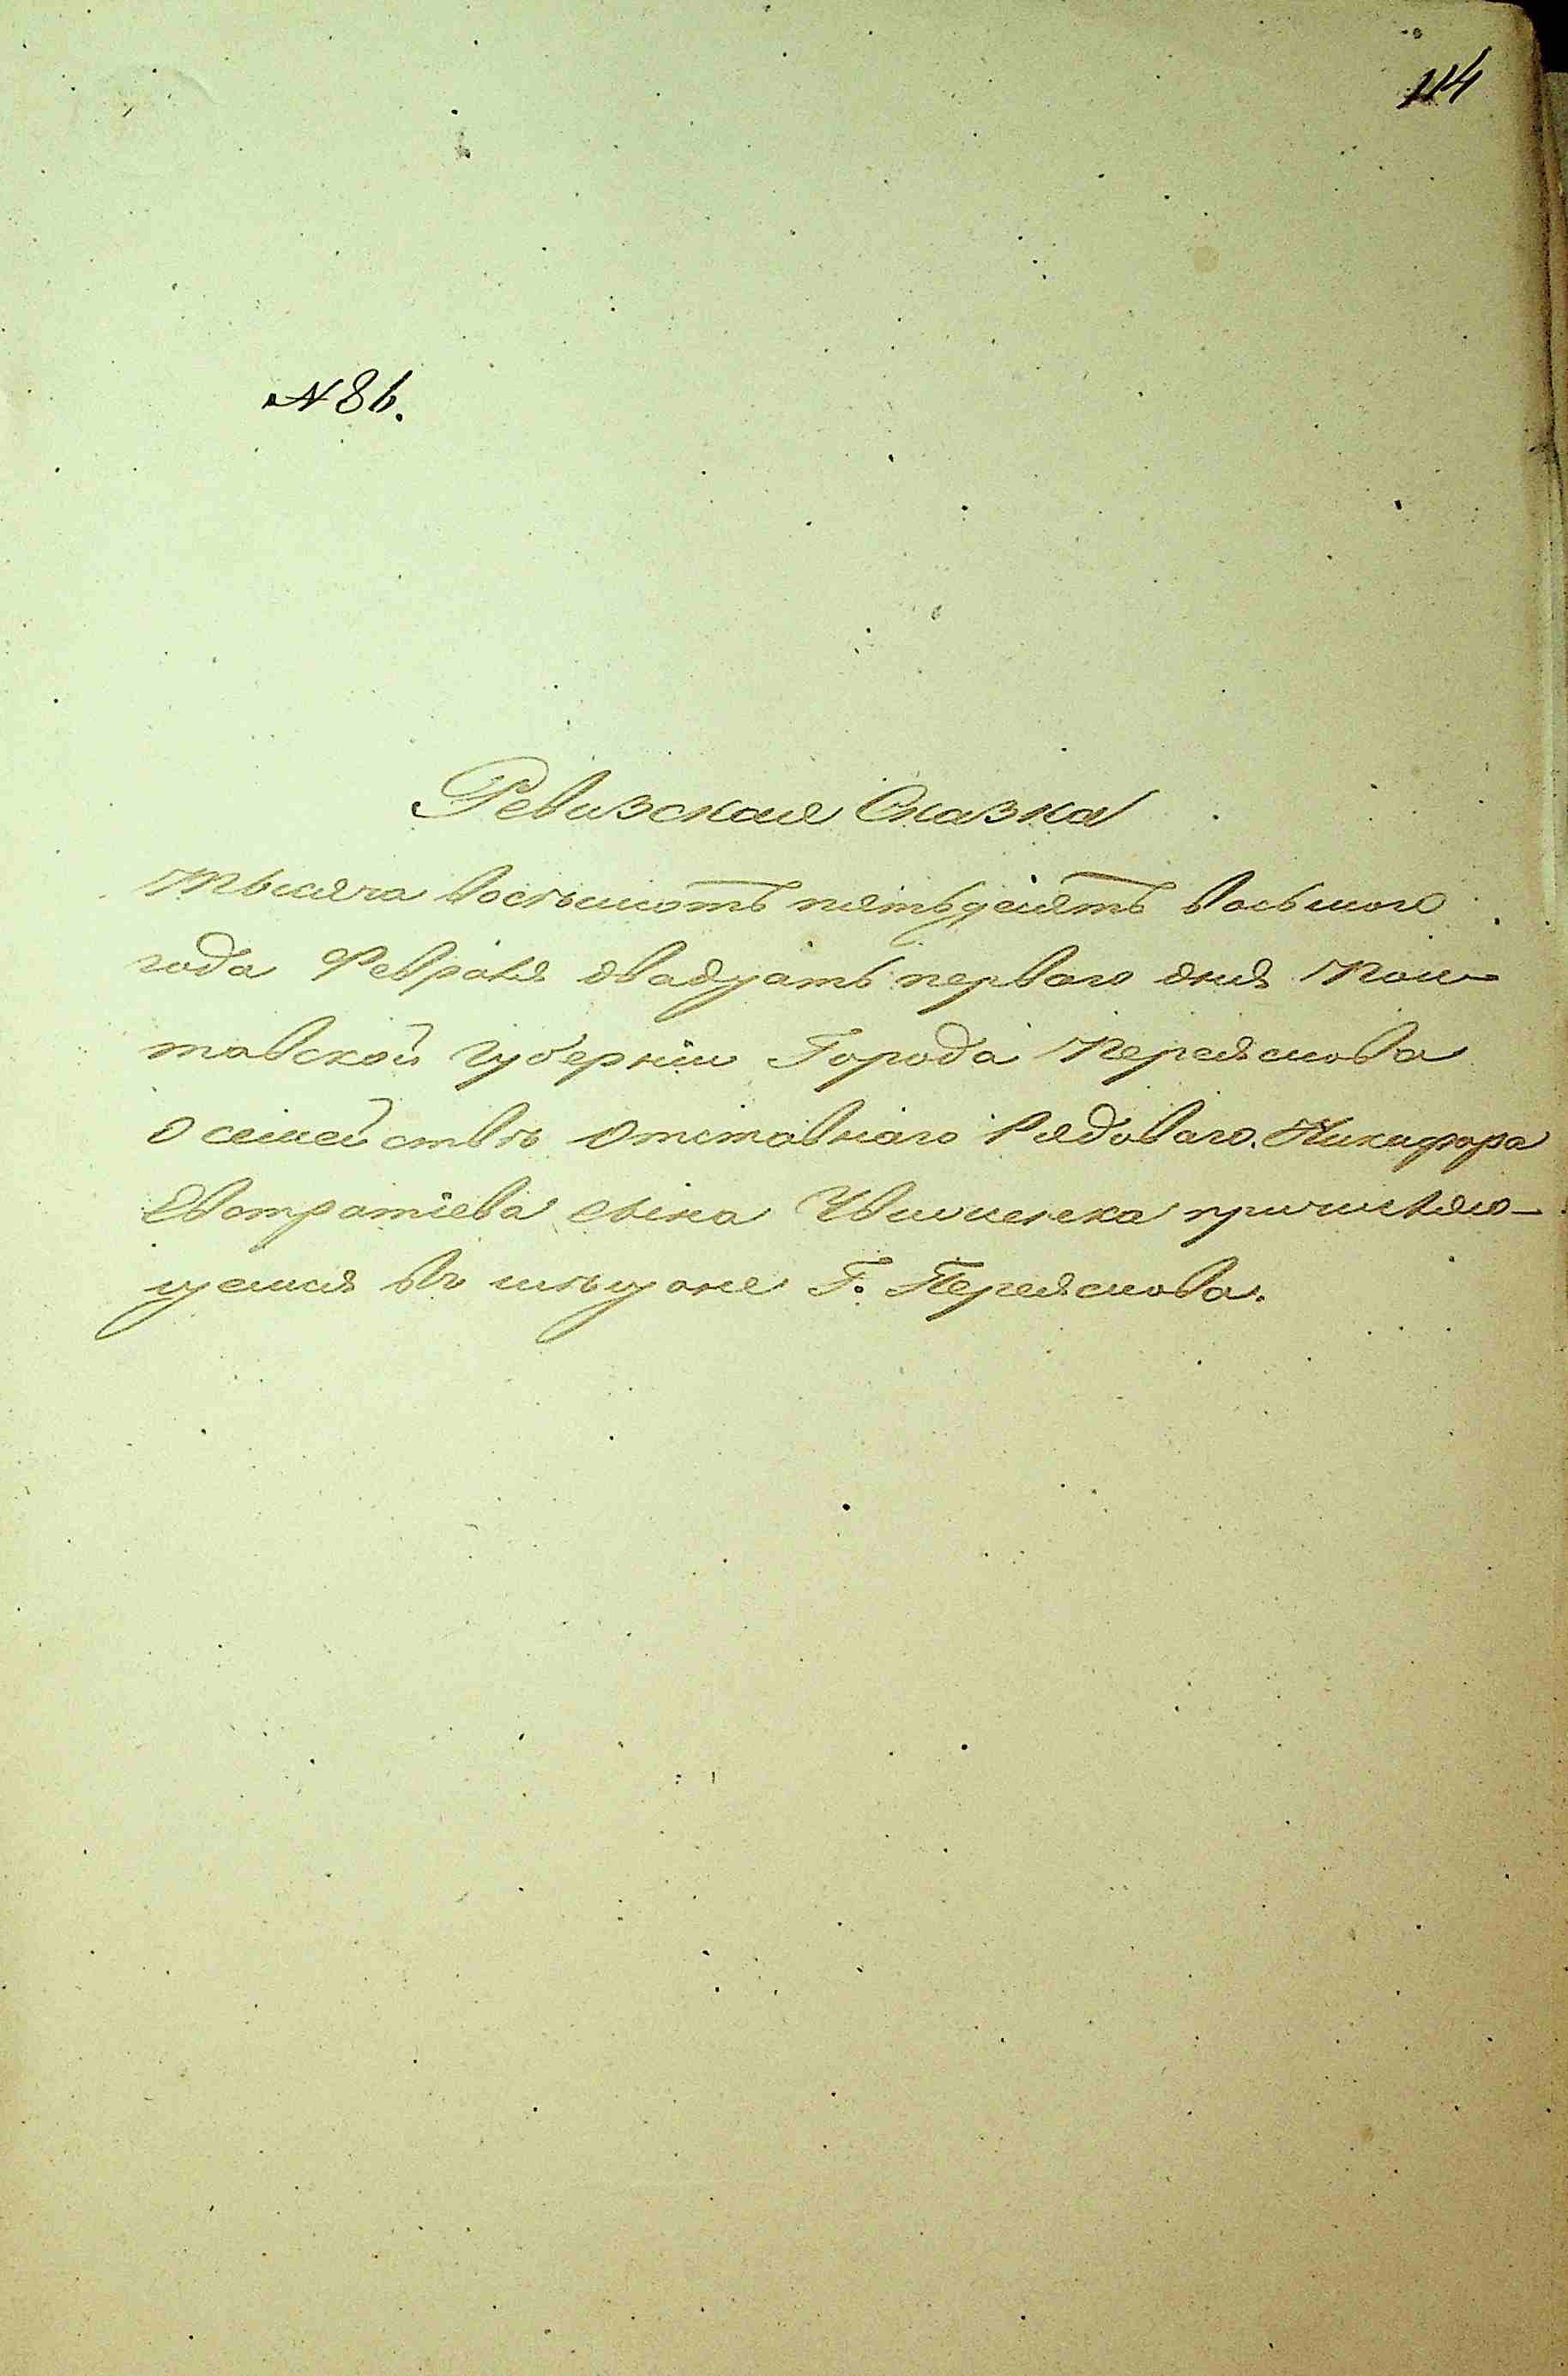 114
№ 86.
Ревизская Сказка
Тысяча восемьсотъ пятьдесятъ восьмого
года Февраля двадцать перваго дня Пол-
тавской губерніи Города Переяслова
о семействѣ Отставнаго Рядоваго Никифора
Евстратіева сына причисляю-
щемся въ мѣщане Г. Переяслова.